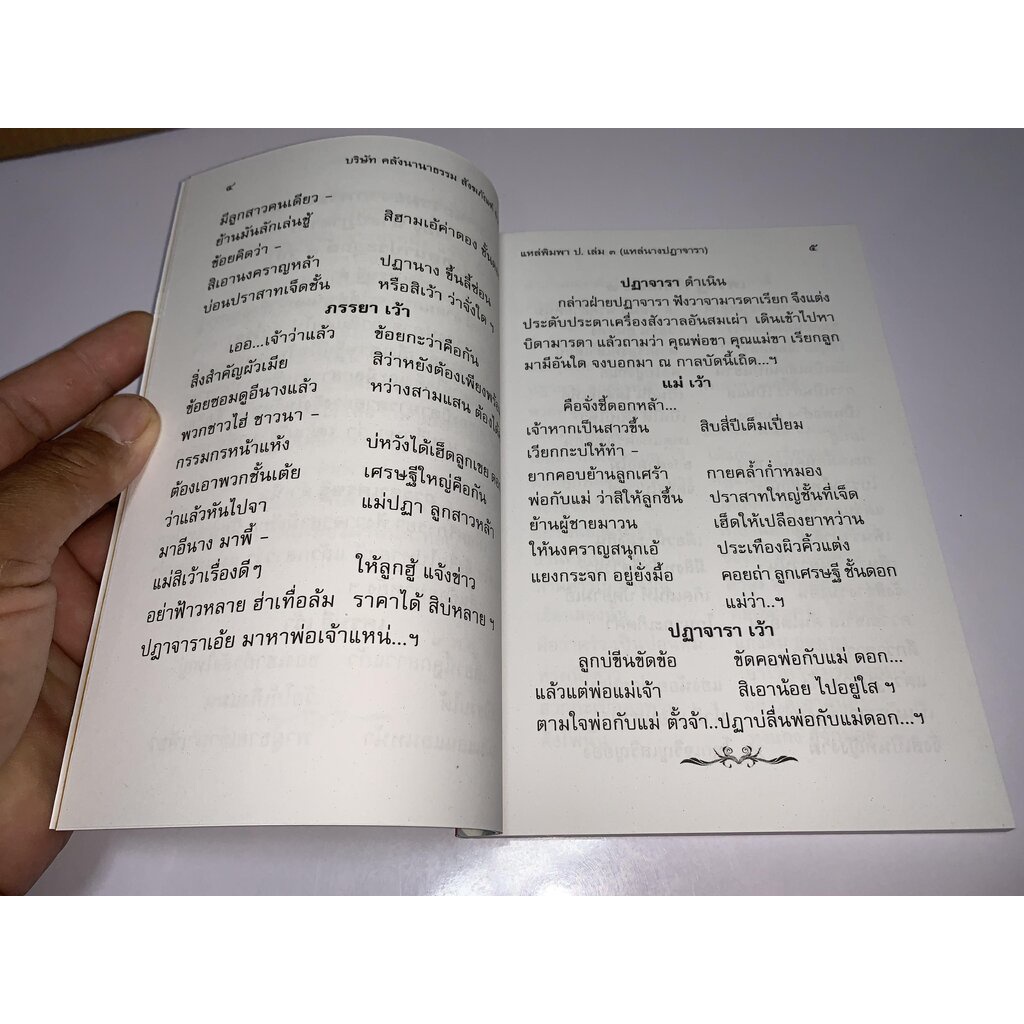 ๔ บริษัท คลังนานาธรรม สังฆภัณฑ์
มีลูกสาวคนเดียว –
ย้านมันลักเล่นซู้ สิฮามเอ้ค่าดอง
ข้อยคิดว่า –
สิเอานงคราญหล้า ปฏานาง ขึ้นลี้ซ่อน
บ่อนปราสาทเจ็ดชั้น หรือสิเว้า ว่าจั่งใด ฯ
ภรรยา เว้า
เออ...เจ้าว่าแม่น ข้อยกะว่าคือกัน
สิ่งสำคัญผัวเมีย สิว่าหยังต้องเพียงพร้อม
ข้อยซอมดูอีนางแล้ว หว่างสามแสน ต้องได้
พวกชาวไฮ่ ชาวนา –
กรรมกรหน้าแห้ง บ่หวังได้เฮ็ดลูกเขย
ต้องเอาพวกชั้นเต้ย เศรษฐีใหญ่คือกัน
ว่าแล้วหันไปจา แม่ปฏา ลูกสาวหล้า
มาอีนาง มาพี้ –
แม่สิเว้าเรื่องดีๆ ให้ลูกฮู้ แจ้งข่าว
อย่าฟ้าวหลาย ฮ่าเทื่อล้ม ราคาได้ สิบ่หลาย ฯ
ปฎาจาราเอ้ย มาหาพ่อเจ้าแหน่...ฯ
แหล่พิมพา ป. เล่ม ๓ (แหล่นางปฏาจารา) ๕
ปฏาจารา ดำเนิน
กล่าวฝ่ายปฎาจารา ฟังวาจามารดาเรียก จึงแต่ง
ประดับประดาเครื่องสังวาลอันสมเผ่า เดินเข้าไปหา
บิดามารดา แล้วถามว่า คุณพ่อขา คุณแม่ขา เรียกลูก
มามีอันใด จงบอกมา ณ กาลบัดนี้เถิด...ฯ
แม่ เว้า
คือจั่งซี้ดอกหล้า...
เจ้าหากเป็นสาวขึ้น สิบสี่ปีเต็มเปี่ยม
เวียกกะบ่ให้ทำ –
ยากคอบย้านลูกเศร้า กายคล้ำก่ำหมอง
พ่อกับแม่ ว่าสิให้ลูกขึ้น ปราสาทใหญ่ชั้นที่เจ็ด
ย้านผู้ชายมาวน เฮ็ดให้เปลืองยาหว่าน
ให้นงคราญสนุกเอ้ ประเทืองผิวคิ้วแต่ง
แยงกระจก อยู่ยั่งมื้อ คอยถ่า ลูกเศรษฐี ชั้นดอก
แม่ว่า..ฯ
ปฏาจารา เว้า
ลูกบ่ขีนขัดข้อ ขัดคอพ่อกับแม่ ดอก...
แล้วแต่พ่อแม่เจ้า สิเอาน้อย ไปอยู่ใส ฯ
ตามใจพ่อกับแม่ ตั้วจ้า..ปฏาบ่ลื่นพ่อกับแม่ดอก...ฯ